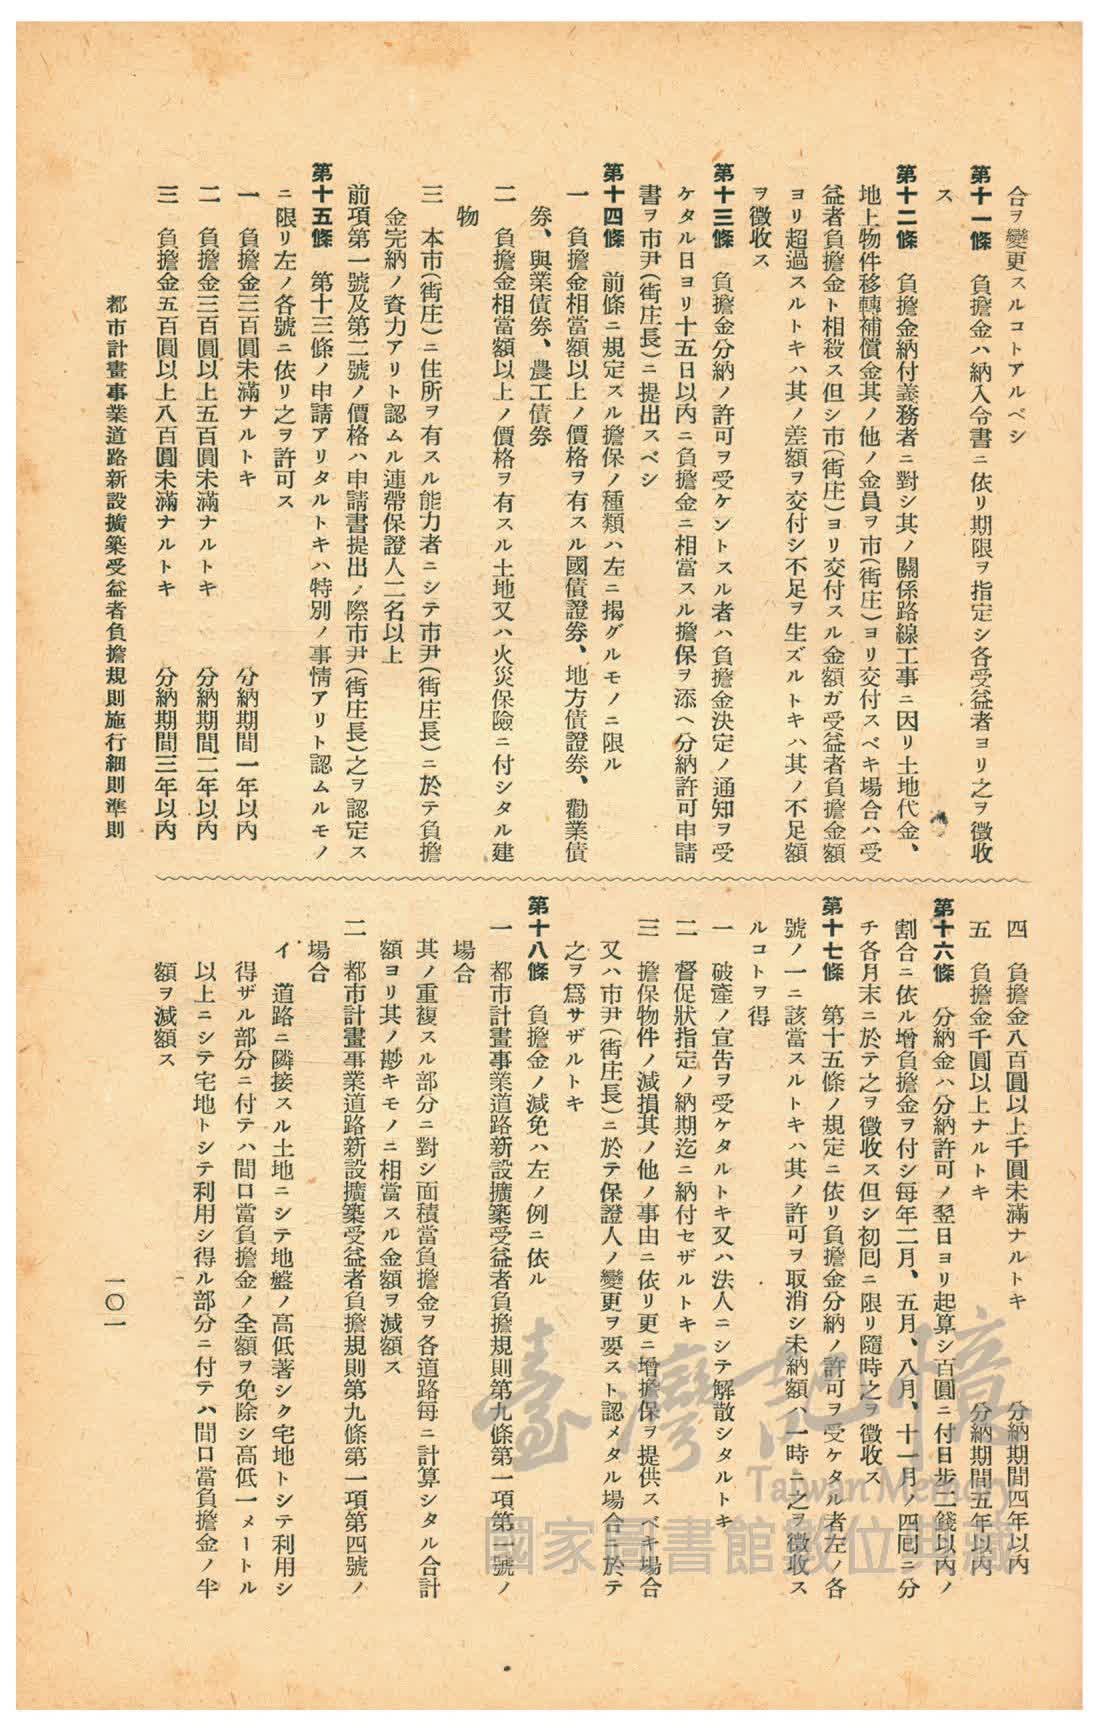 合ヲ變更スルコトアルベシ
第十一條　負擔金ハ納入令書ニ依リ期限ヲ指定シ各受益者ヨリ之ヲ徵收
ス
第十二條　負擔金納付義務者ニ對シ其ノ關係路線工事ニ因リ土地代金、
地上物件移轉補償金其ノ他ノ金員ヲ市(街庄)ヨリ交付スベキ場合ハ受
益者負擔金ト相殺ス但シ市(街庄)ヨリ交付スル金額ガ受益者負擔金額
ヨリ超過スルトキハ其ノ差額ヲ交付シ不足ヲ生ズルトキハ其ノ不足額
ヲ徵收ス
第十三條　負擔金分納ノ許可ヲ受ケントスル者ハ負擔金決定ノ通知ヲ受
ケタル日ヨリ十五日以內ニ負擔金ニ相當スル擔保ヲ添ヘ分納許可申請
書ヲ市尹(街庄長)ニ提出スベシ
第十四條　前條ニ規定スル擔保ノ種類ハ左ニ揭グルモノニ限ル
一　負擔金相當額以上ノ價格ヲ有スル國債證券、地方債證券、勸業債
券、興業債券、農工債券
二　負擔金相當額以上ノ價格ヲ有スル土地又ハ火災保險ニ付シタル建
物
三　本市(街庄)ニ住所ヲ有スル能力者ニシテ市尹(街庄長)ニ於テ負擔
金完納ノ資力アリト認ムル連帶保證人二名以上
前項第一號及第二號ノ價格ハ申請書提出ノ際市尹(街庄長)之ヲ認定ス
第十五條　第十三條ノ申請アリタルトキハ特別ノ事情アリト認ムルモノ
ニ限リ左ノ各號ニ依リ之ヲ許可ス
一　負擔金三百圓未滿ナルトキ　分納期間一年以內
二　負擔金三百圓以上五百圓未滿ナルトキ　分納期間二年以內
三　負擔金五百圓以上八百圓未滿ナルトキ　分納期間三年以內
四　負擔金八百圓以上千圓未滿ナルトキ　分納期間四年以內
五　負擔金千圓以上ナルトキ　分納期間五年以內
第十六條　分納金ハ分納許可ノ翌日ヨリ起算シ百圓ニ付日步二錢以內ノ
割合ニ依ル增負擔金ヲ付シ每年二月、五月、八月、十一月ノ四囘ニ分
チ各月末ニ於テ之ヲ徵收ス但シ初囘ニ限リ隨時之ヲ徵收ス
第十七條　第十五條ノ規定ニ依リ負擔金分納ノ許可ヲ受ケタル者左ノ各
號ノ一ニ該當スルトキハ其ノ許可ヲ取消シ未納額ハ一時ニ之ヲ徵收ス
ルコトヲ得
一　破產ノ宣告ヲ受ケタルトキ又ハ法人ニシテ解散シタルトキ
二　督促狀指定ノ納期迄ニ納付セザルトキ
三　擔保物件ノ減損其ノ他ノ事由ニ依リ更ニ增擔保ヲ提供スベキ場合
又ハ市尹(街庄長)ニ於テ保證人ノ變更ヲ要スト認メタル場合ニ於テ
之ヲ爲サザルトキ
第十八條　負擔金ノ減免ハ左ノ例ニ依ル
一　都市計畫事業道路新設擴築受益者負擔規則第九條第一項第一號ノ
場合
其ノ重複スル部分ニ對シ面積當負擔金ヲ各道路每ニ計算シタル合計
額ヨリ其ノ尠キモノニ相當スル金額ヲ減額ス
二　都市計畫事業道路新設擴築受益者負擔規則第九條第一項第四號ノ
場合
イ　道路ニ隣接スル土地ニシテ地盤ノ高低著シク宅地トシテ利用シ
得ザル部分ニ付テハ間口當負擔金ノ全額ヲ免除シ高低一メートル
以上ニシテ宅地トシテ利用シ得ル部分ニ付テハ間口當負擔金ノ半
額ヲ減額ス
都市計畫事業道路新設擴築受益者負擔規則施行細則準則
一〇一
臺灣記憶
Taiwan Memory
國家圖書館數位典藏